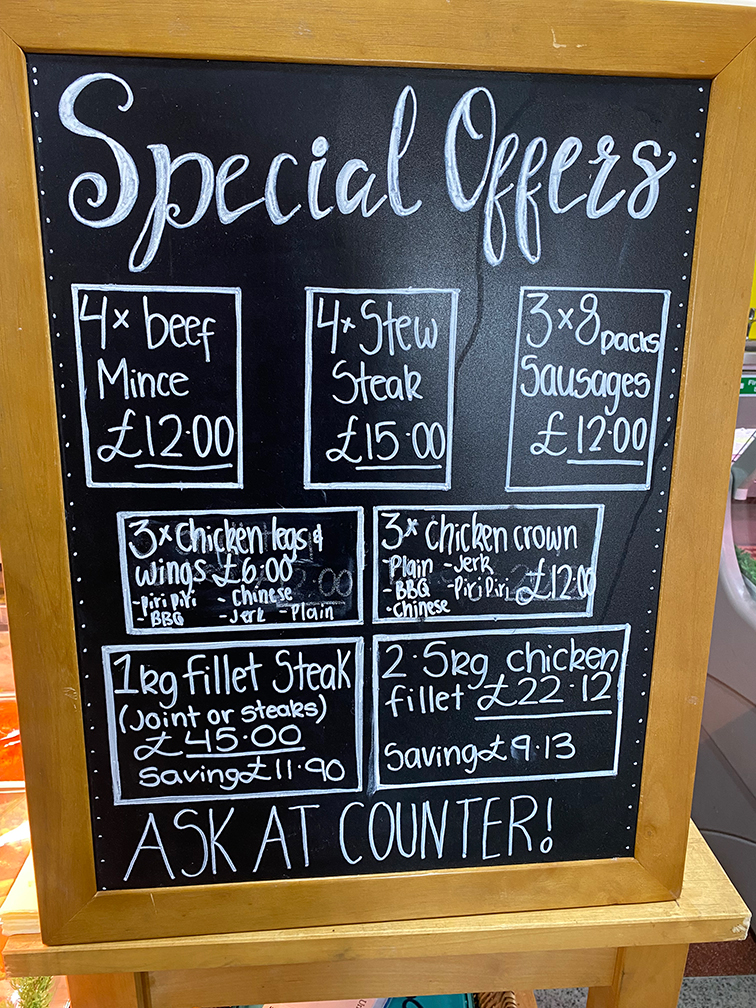 Special Offers
4x beef
Mince
£12.00
4x Stew
Steak
£15.00
3x8 packs
Sausages
£12.00
3x Chicken legs &
wings £6.00
-Piri Piri - Chinese
- BBQ - Jerk - Plain
3x chicken crown
-Plain -Jerk
-BBQ -Piri Piri £12.00
-Chinese
1kg fillet Steak
(Joint or steaks)
£45.00
Saving £11.90
2.5kg chicken
fillet £22.12
Saving £9.13
ASK AT COUNTER!